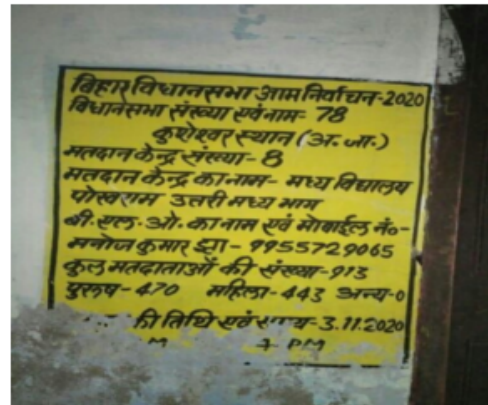 बिहार विधानसभा आम निर्वाचन-2020
विधानसभा संख्या एवं नाम- 78
कुशेश्वर स्थान (अ.जा.)
मतदान केन्द्र संख्या-8
मतदान केन्द्र का नाम- मध्य विद्यालय
पोखराम उत्तरी मध्य भाग
बी.एल.ओ. का नाम एवं मोबाईल नं०-
मनोज कुमार झा- 9955729065
कुल मतदाताओं की संख्या-913
पुरूष-470 महिला-443 अन्य-0
की तिथि एवं समय-3.11.2020
PM